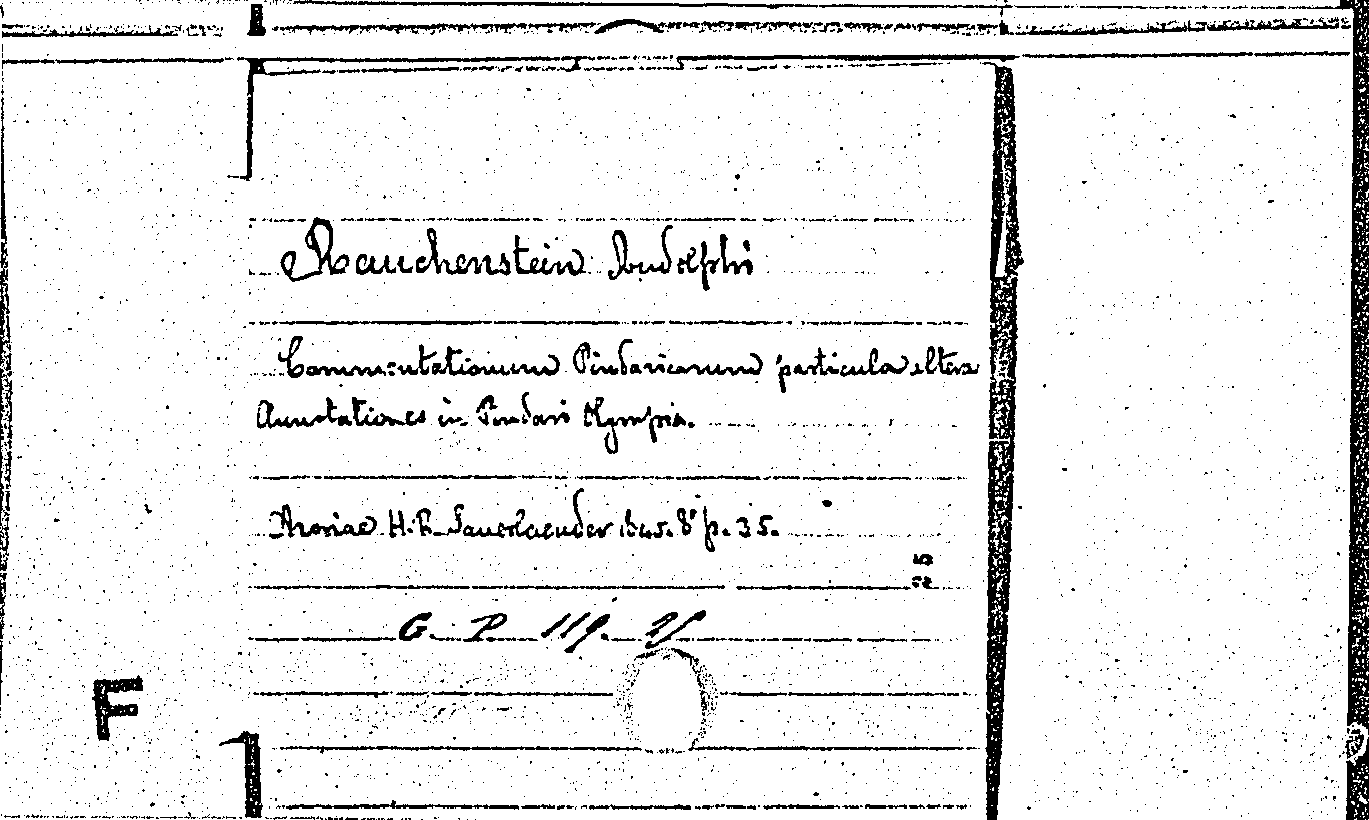 Rauchenstein Rudolphi
Commentationum Pindaricarum particula altera
Annotationes in Pindari Olympia.
Aroviae H.R. Sauerlaender 1845. 8° p. 35.
G. P. 119.
F